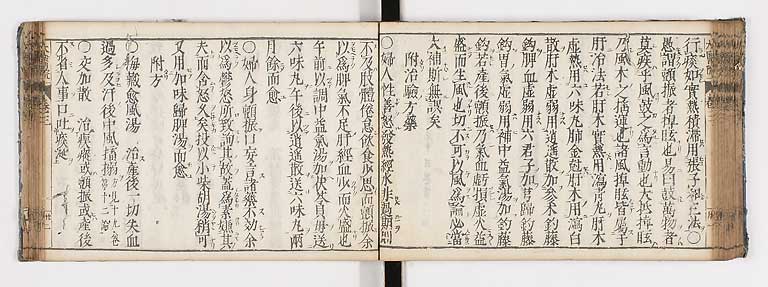 行痰如實熱積滯用張子和三法〇
愚謂顫振者掉眩也易曰鼓萬物者
莫疾乎風鼓之爲言動也大抵掉眩
乃風木之搖運也諸風掉眩皆屬于
肝治法若肝木實熱用瀉青丸肝木
虛熱用六味丸肺金尅肝木用瀉白
散肝木虛弱用逍遙散加參朮釣藤
釣脾血虛弱用六君子加芎歸釣藤
釣胃氣虛弱用補中益氣湯加釣藤
釣若產後顫振乃氣血虧損虛火益
盛而生風也切不可以風爲論必當
大補斯無誤矣
附治驗方藥
〇婦人性善怒發熱經水非過期則
不及肢體倦怠飲食少思而顫振余
以爲脾氣不足肝經血少而火盛也
午前以調中益氣湯加茯苓貝母送
六味丸午後以逍遙散送六味丸兩
月餘而愈
〇婦人身顫振口妄言諸藥不効余
以爲鬱怒所致詢其故蓋爲素嫌其
夫而含怒久矣投以小柴胡湯稍可
又用加味歸脾湯而愈
附方
愈風湯 治產後一切失血
過多及汗後中風搐搦
〇交加散 治瘈瘲或顫振或產後
不省人事口吐痰涎